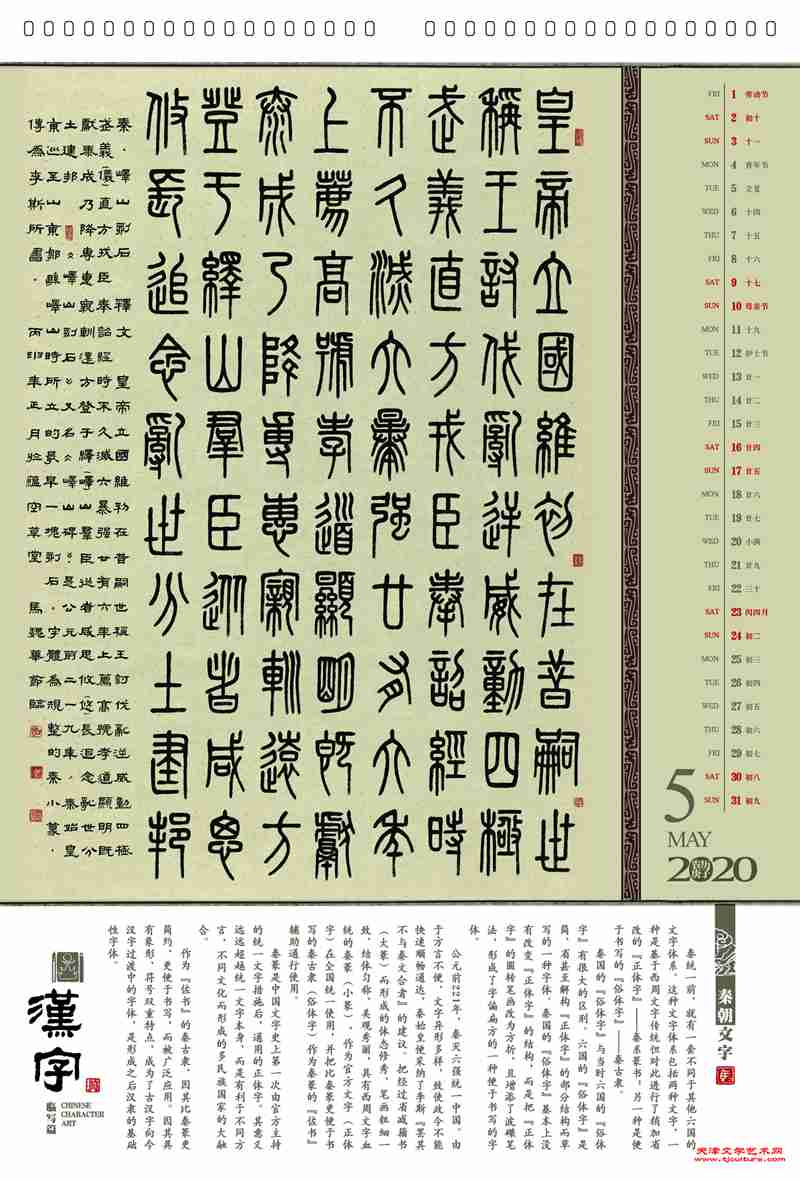 皇帝立國維初在昔嗣世
稱王討伐亂逆威動四極
武義直方戎臣奉詔經時
不久滅六暴强廿有六年
上薦高號孝道顯明既獻
泰成乃降尃惠寴軔遠方
登于繹山羣臣從者咸思
攸長追念亂世分土建邦
秦·嶧山刻石 釋文 皇帝立國維初在昔嗣世稱王討伐亂逆威動四極
武義(儀)直方戎臣奉詔經時不久滅六暴强廿有六年上薦高號孝道顯明既
獻泰成乃降尃惠寴軔遠方登于繹(嶧)山羣臣從者咸思攸(悠)長追念亂世分
土建邦 嶧山刻石:又名嶧山碑:是公元前二一九年秦始皇
東巡至山東鄒縣嶧山時所立的最早一塊刻石·字體為規整的秦小篆·
傳為李斯所書· 年正月於蘊空草堂 馬魏華節臨
FRI 1 劳动节
SAT 2 初十
SUN 3 十一
MON 4 青年节
TUE 5 立夏
WED 6 十四
THU 7 十五
FRI 8 十六
SAT 9 十七
SUN 10 母亲节
MON 11 十九
TUE 12 护士节
WED 13 廿一
THU 14 廿二
FRI 15 廿三
SAT 16 廿四
SUN 17 廿五
MON 18 廿六
TUE 19 廿七
WED 20 小满
THU 21 廿九
FRI 22 三十
SAT 23 闰四月
SUN 24 初二
MON 25 初三
TUE 26 初四
WED 27 初五
THU 28 初六
FRI 29 初七
SAT 30 初八
SUN 31 初九
5
MAY
2020
秦朝文字
秦统一前，就有一套不同于其他六国的
文字体系。这种文字体系包括两种文字，一
种是基于西周文字传统但对此进行了稍加省
改的『正体字』——秦系篆书；另一种是便
于书写的『俗体字』——秦古隶。
秦国的『俗体字』与当时六国的『俗体
字』有很大的区别，六国的『俗体字』是
简、省甚至解构『正体字』的部分结构而草
写的一种字体，秦国的『俗体字』基本上没
有改变『正体字』的结构，而是把『正体
字』的圆转笔画改为方折，且增添了波磔笔
法，形成了字偏扁方的一种便于书写的字
体。
公元前221年，秦灭六强统一中国。由
于方言不便，文字异形多样，致使政令不能
快速顺畅通达，秦始皇便采纳了李斯『罢其
不与秦文合者』的建议，把经过省减籀书
（大篆）而形成的体态修秀，笔画粗细一
致，结体匀称，美观秀丽，具有西周文字血
统的秦篆（小篆），作为官方文字（正体
字）在全国统一使用，并把比秦篆更便于书
写的秦古隶（俗体字）作为秦篆的『佐书』
辅助通行使用。
秦篆是中国文字史上第一次由官方主持
的统一文字措施后，通用的正体字。其意义
远远超越统一文字本身，而是有利于不同方
言、不同文化而形成的多民族国家的大融
合。
作为『佐书』的秦古隶，因其比秦篆更
简约，更便于书写，而被广泛应用。因其具
有象形、符号双重特点，成为了古汉字向今
汉字过渡中的字体，是形成之后汉隶的基础
性字体。
漢字
临写篇
CHINESE
CHARACTER
ART
天津文学艺术网
www.tjculture.com